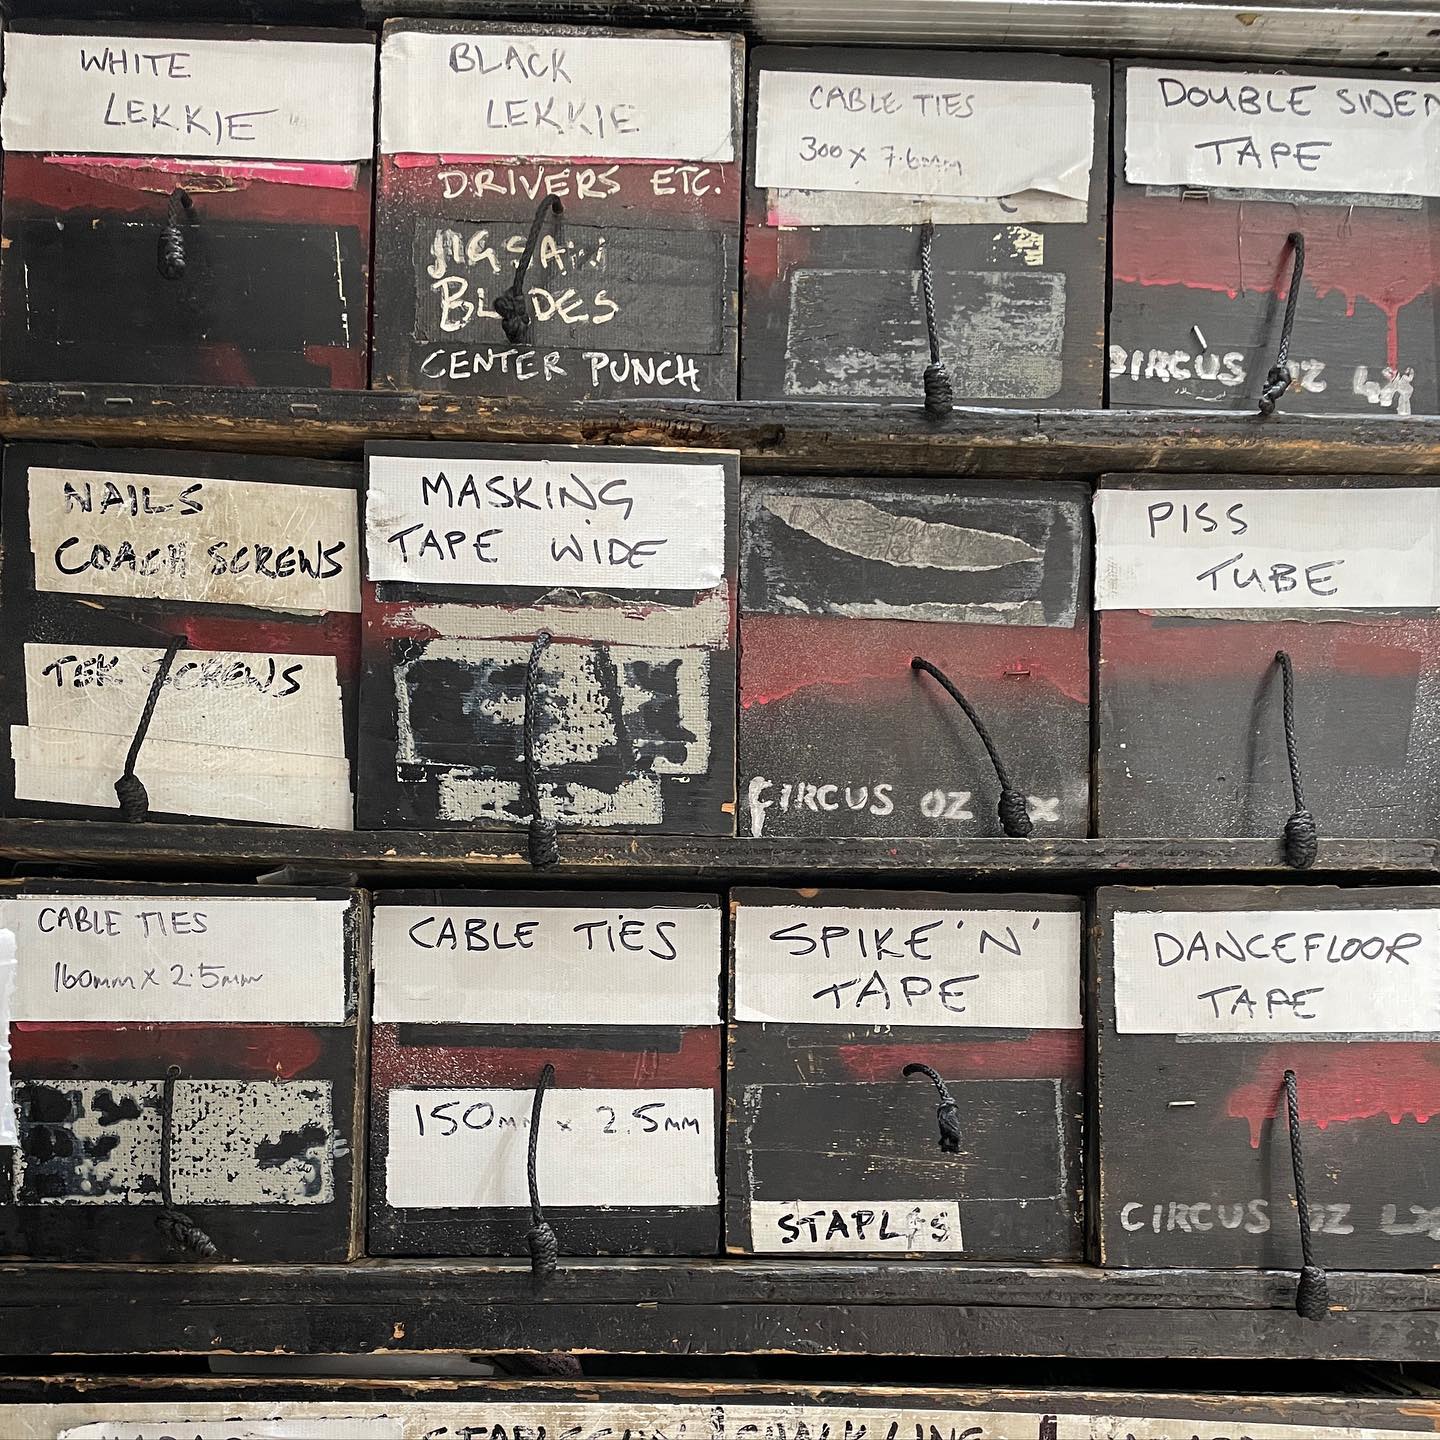 WHITE
LEKKIE
BLACK
LEKKIE
DRIVERS ETC.
JIGSAW
BLADES
CENTER PUNCH
CABLE TIES
300 x 7.6mm
DOUBLE SIDED
TAPE
CIRCUS OZ LX
NAILS
COACH SCREWS
TEK SCREWS
MASKING
TAPE WIDE
CIRCUS OZ
PISS
TUBE
CABLE TIES
160mm x 2.5mm
CABLE TIES
150mm x 2.5mm
SPIKE 'N'
TAPE
STAPLES
DANCEFLOOR
TAPE
CIRCUS OZ LX
CHALK LINE